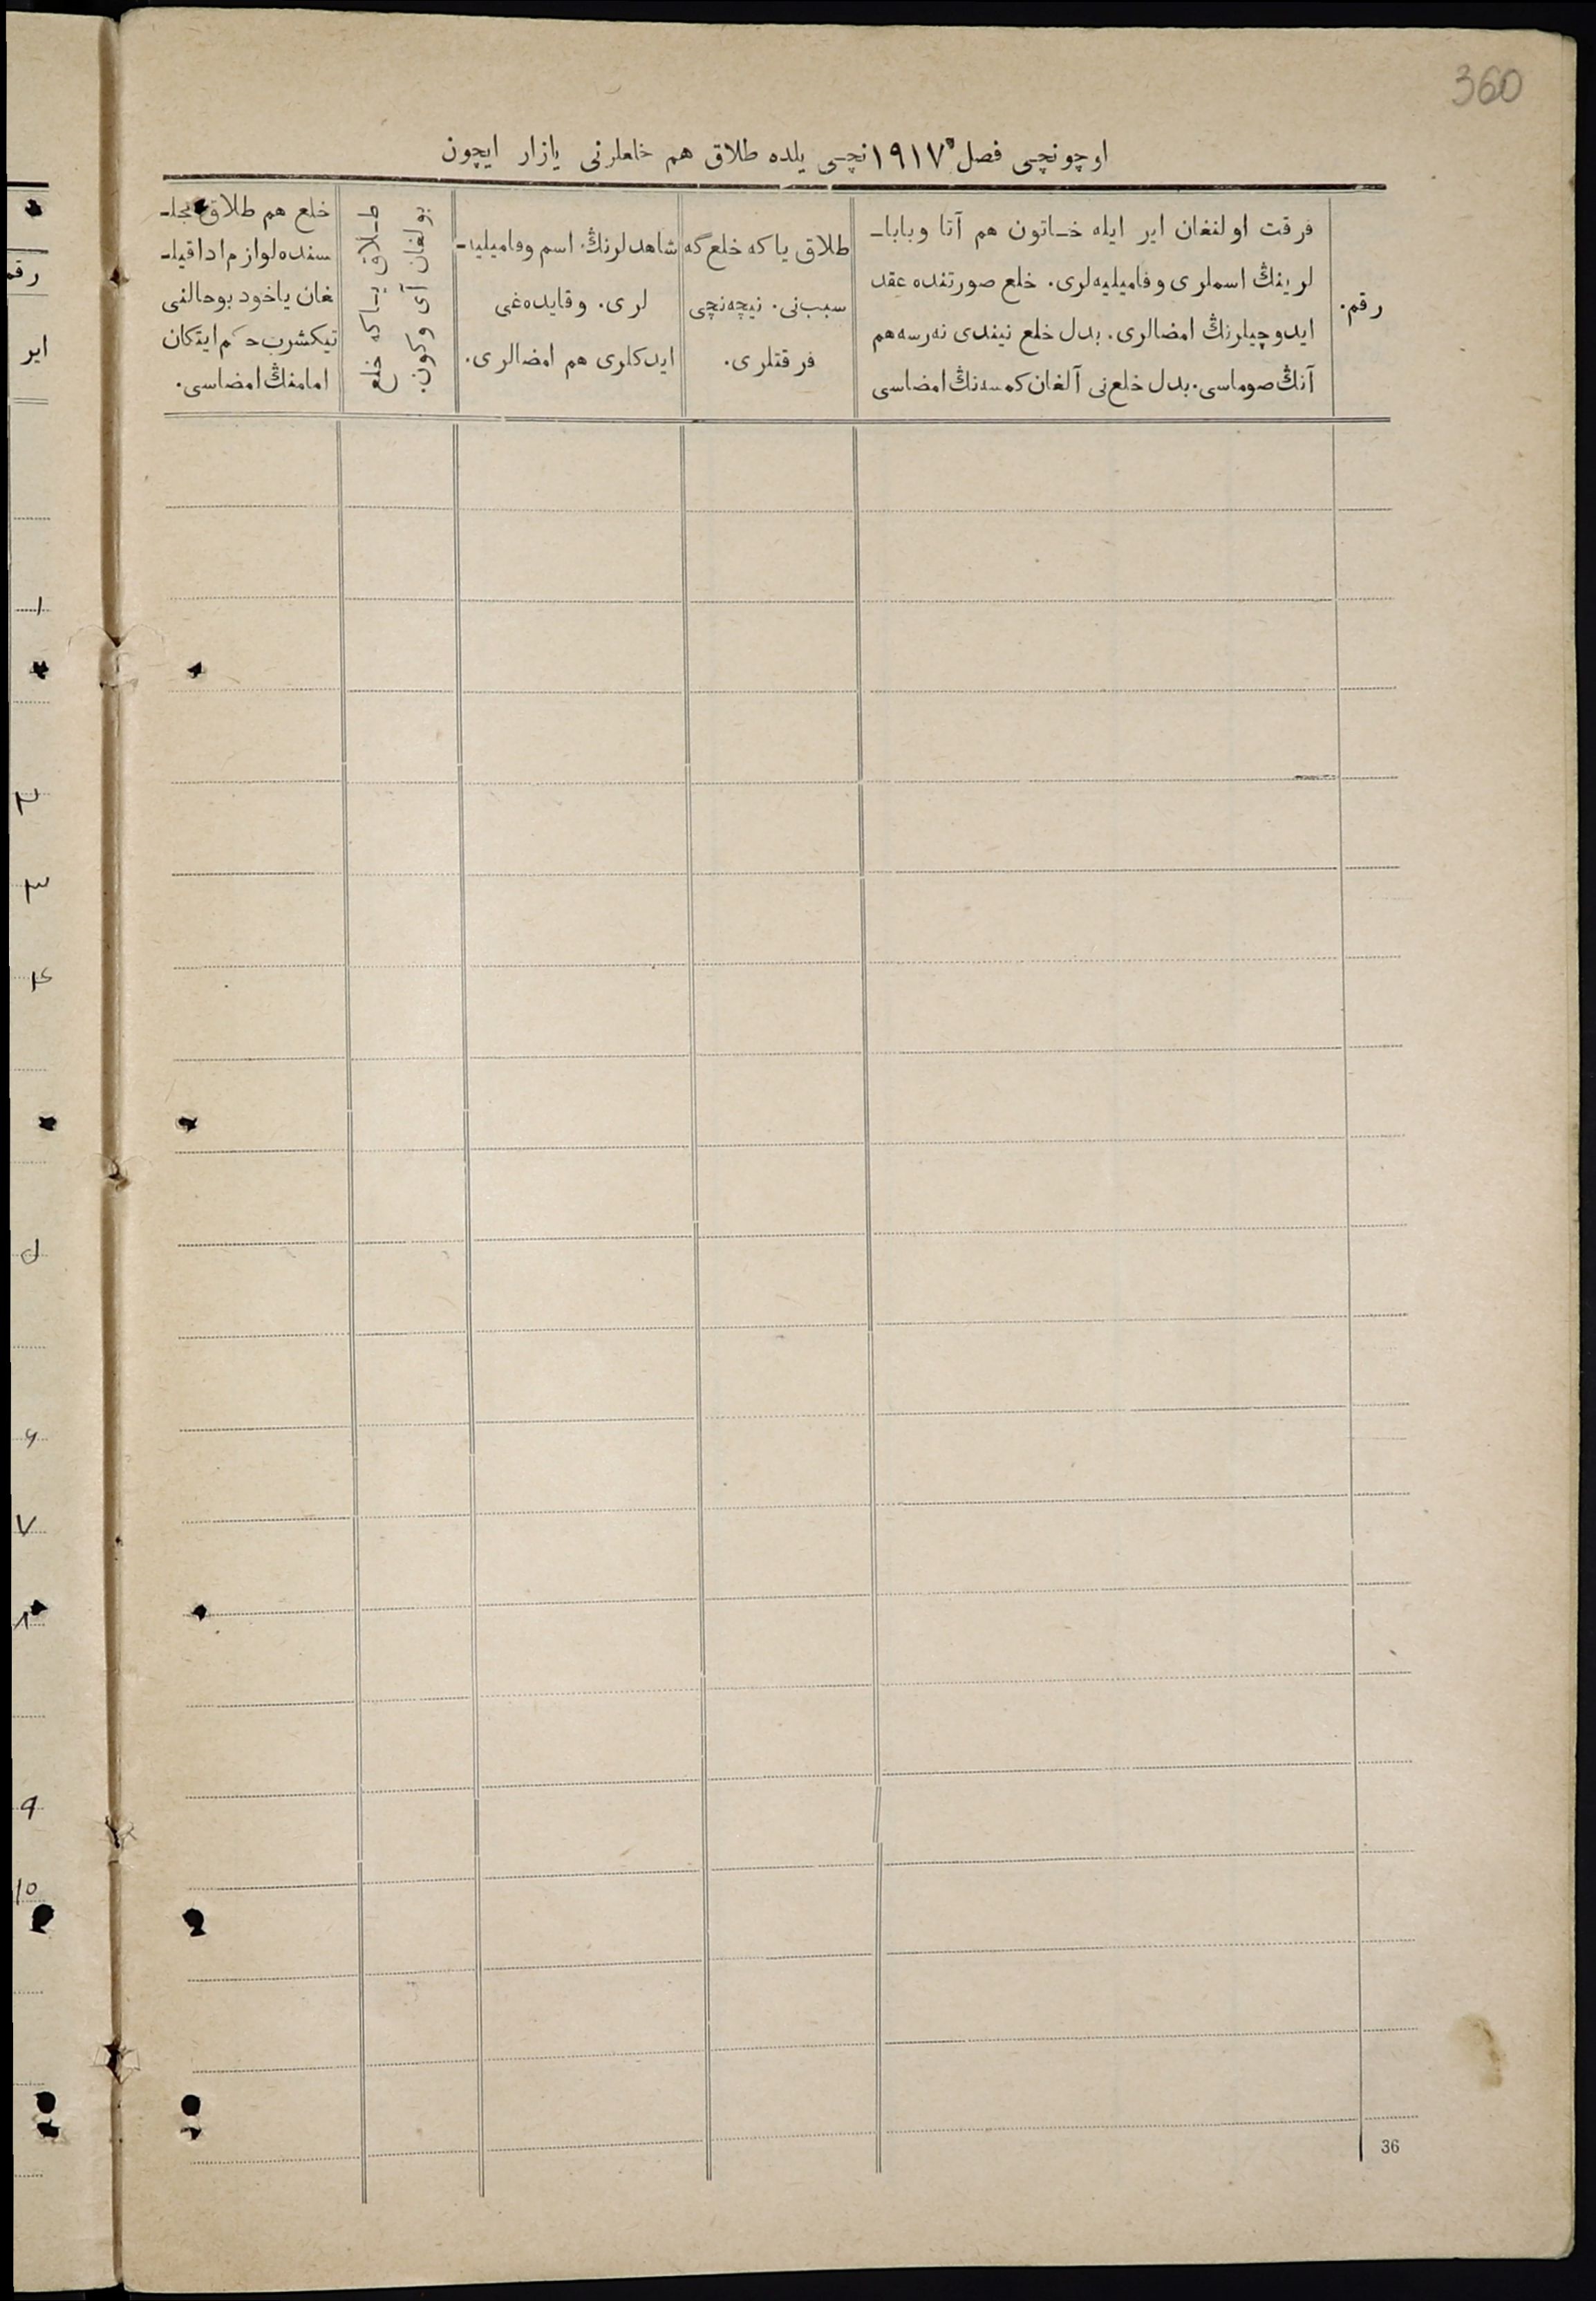 360
اوچونچی فصل ١٩١٧ نچی یلده طلاق هم خلعلرنی یازار ایچون
رقم.
فرقت اولنغان ایر ایله خـاتون هم آتا وبابا-
لرینڭ اسملری وفامیلیه‌لری. خلع صورتنده عقد
ایدوچیلرنڭ امضالری. بدل خلع نیندی نەرسه هم
آنڭ صوماسی. بدل خلع‌نی آلغان کمسەنڭ امضاسی
طلاق یا که خلع گه
سبب‌نی. نیچه‌نچی
فرقتلری.
شاهدلرنڭ اسم وفامیلیه-
لری. وقایده‌غی
ایدکلری هم امضالری.
طـلاق یـاکه خلع
بولغان آی وکون.
خلع هم طلاق مجلـ
سنده لوازم ادا قیلـ
غان یاخود بوحالنی
تیکشرب حکم ایتکان
امامنڭ امضاسی.
36
رقم
ایر
١
٢
٣
۴
۵
۶
٧
٨
٩
١٠